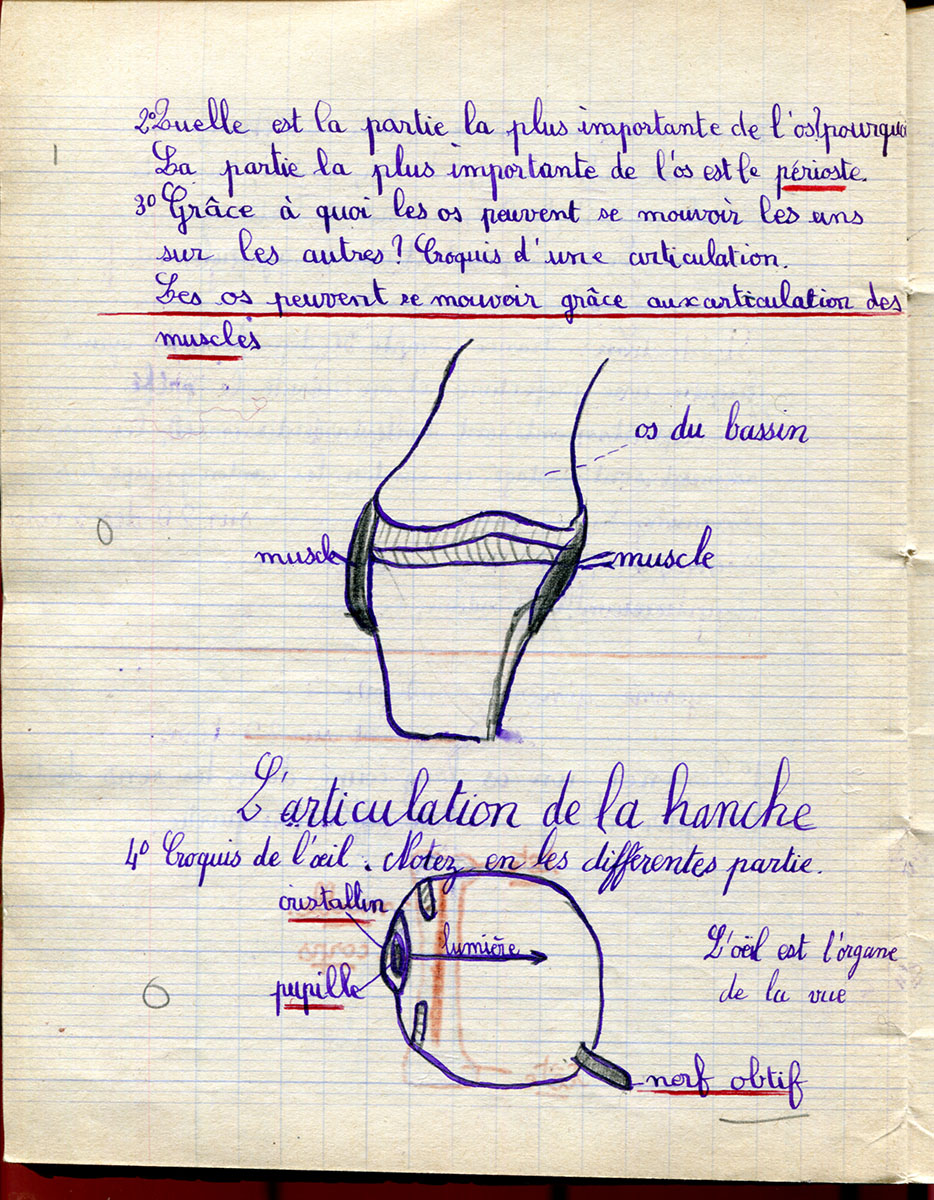 2° Quelle est la partie la plus importante de l'os? pourquoi
1
La partie la plus importante de l'os est le périoste.
3° Grâce à quoi les os peuvent se mouvoir les uns
sur les autres? Croquis d'une articulation.
Les os peuvent se mouvoir grâce aux articulation des
muscles
os du bassin
0
muscle
muscle
L'articulation de la hanche
4° Croquis de l'œil. Notez en les différentes partie.
cristallin
lumière
L'oëil est l'organe
de la vue
pupille
0
nerf obtif